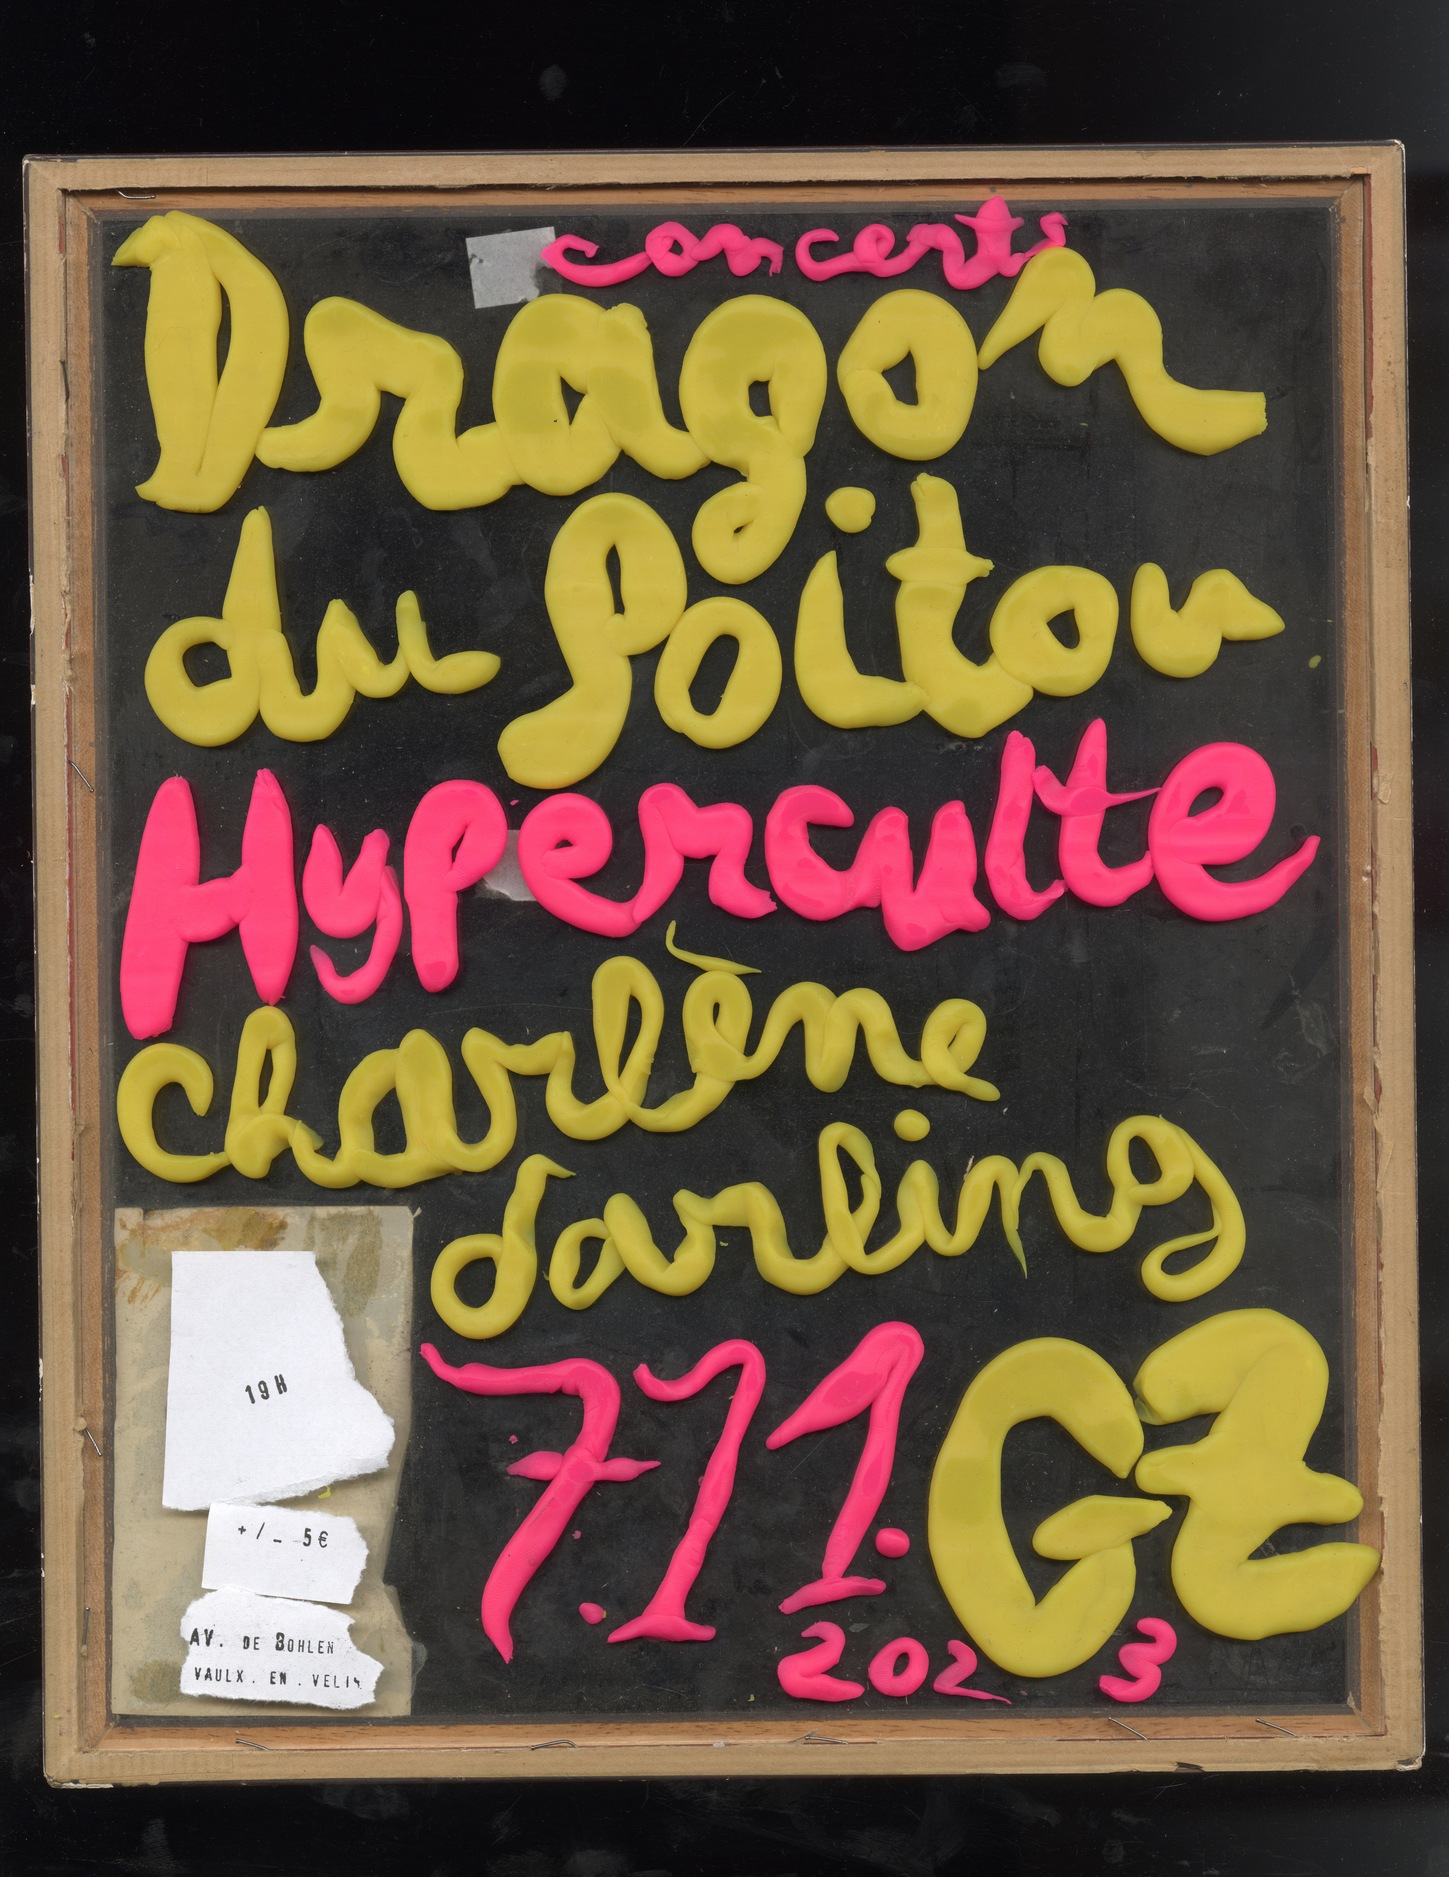 concerts
Dragon
du Poitou
Hyperculte
charlène
darling
7.11.
GZ
2023
19H
+/_ 5€
AV. DE BOHLEN
VAULX. EN. VELIN